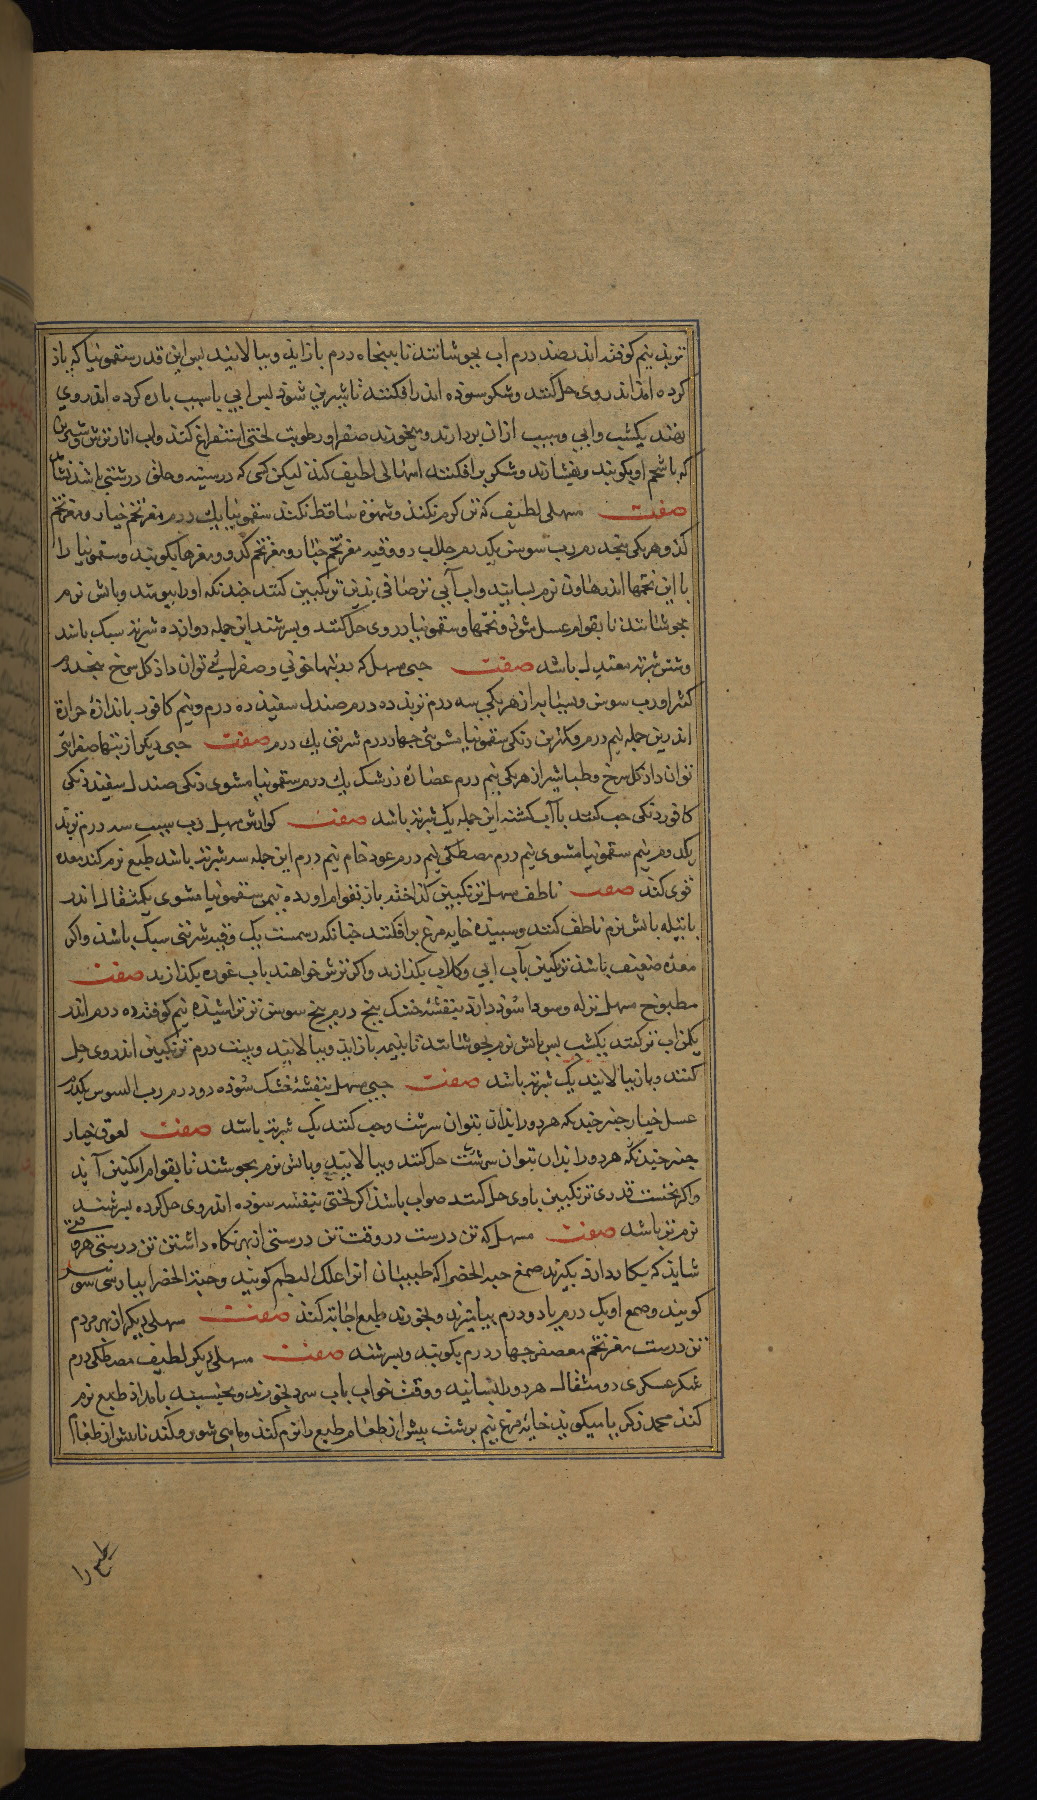 تربذ نیم کوفته اندر صد درم اب بجوشانند تا بپنجاه درم بازاید و ببالایند پس این قدر سقمونیا که یاذ
کرده امذ اندر وی حل کنند و شکر سوذه اندر افکنند تا شیرین شوذ پس ابی یا سیب پاره کرده اندر وی
نهند یکشب و ابی و سیب ازان بردارند و بخورند صفرا و رطوبت لختی استفراغ کند و اب انار ترش و شیرین
که با شحم او بکوبند و بفشارند و شکر برافکنند اسهالی لطیف کنذ لیکن کسی که در سینه و حلق درشتی باشذ نشاید
صفت مسهلی لطیف که تن کرم نکنذ و شهوة ساقط نکند سقمونیا یك درم مغز تخم خیار و مغز تخم
کذو هر یکی پنجدرم رب سوس یکدرم جلاب دو وقیه مغز تخم خیار و مغز تخم کذو و مغزها بکوبند و سقمونیا را
با این تخمها اندر هاون نرم بسایند و اب آبی ترصافی بدین ترنکبین کنند چندنکه اورا بپوشد و باتش نرم
بجوشانند تا بقوام عسل شوذ و تخمها و سقمونیا در وی حل کنند و بسرشند این جمله دوازده شربت سبک باشد
و شش شربت معتدل باشد صفت حبی مسهل که در تبهای خونی و صفرایی توان داذ کل سرخ پنجدرم
کثیرا و رب سوس و سپستان از هر یکی سه درم تربذ ده درم صندل سفید ده درم و نیم کافور باندازۀ حرارة
اندرین جمله نیم درم و کمترین دنکی سقمونیا مشوی چهار درم شربتی یك درم صفت حبی دیکر از تبها صفرائی
توان داذ کل سرخ و طباشیر از هر یکی نیم درم عصارۀ زرشک یك درم سقمونیا مشوی دنکی صندل سفید دنکی
کافور دنکی حب کنند بآب کشنه این جمله یک شربت باشد صفت کوارش مسهل رب سیب سه درم تربد
یکدرم نیم سقمونیا مشوی نیم درم مصطکی نیم درم عود خام نیم درم این جمله سه شربت باشد طبع نرم کند معده
قوی کند صفت ناطف مسهل ترنکبین کذاخته باز بقوام اورده نیم من سقمونیا مشوی یکمثقال اندر
پاتیله باتش نرم ناطف کنند و سپیدۀ خایه مرغ برافکنند چنانکه رسمست یک وقیه شربتی سبک باشذ و اکر
معده ضعیف باشذ ترنکبین بآب ابی و کلاب بکذازند و اکر ترش خواهند باب غوره بکذازند صفت
مطبوخ مسهل نزله و سودا سوذ دارذ بنفشه خشک پنج درم بیخ سوس تر تراشیذه نیم کوفته ده درم اندر
یکمن اب تر کنند یکشب پس باتش نرم بجوشانند تا بنیمه بازاید و ببالایند و بیست درم ترنکبین اندر وی حل
کنند و باز ببالایند یک شربت باشد صفت حبی مسهل بنفشۀ خشک سوذه دو درم رب السوس یکدرم
عسل خیار چنبر چندیکه هر دو را بذان بتوان سرشت و حب کنند یک شربت باشد صفت لعوق خیار
چنبر چندنکه هر دو را بذان بتوان سرشت حل کنند و ببالایند و باتش نرم بجوشند تا بقوام انکبین آید
و اکر نخست قدری ترنکبین با وی حل کنند صواب باشذ اکر لختی بنفشه سوذه اندر وی حل کرده بسرشند
نرم تر باشد صفت مسهل که تن درست در وقت تن درستی از بهر نکاه داشتن تن درستی هر وقتی
شایذ که بکار دارذ بکیرند صمغ حبه الخضرا که طبیبان انرا علك البطم کویند و حبة الخضرا بپارسی
کویند و صمغ او یک درم یا دو درم بیامیزند و بخورند طبع اجابت کنذ صفت مسهلی دیکر از بهر مردم
تن درست مغز تخم معصفر چهار درم بکوبند و بسرشند صفت مسهلی دیکر لطیف مصطکی درم
شکر عسکری دو مثقال هر دو را بسایند و وقت خواب باب سرد بخورند و بخسبند بامداذ طبع نرم
کنذ محمد زکریا میکویذ خایۀ مرغ نیم برشت پیش از طعام طبع را نرم کنذ و ماهی شور مکند تا پیش از طعام